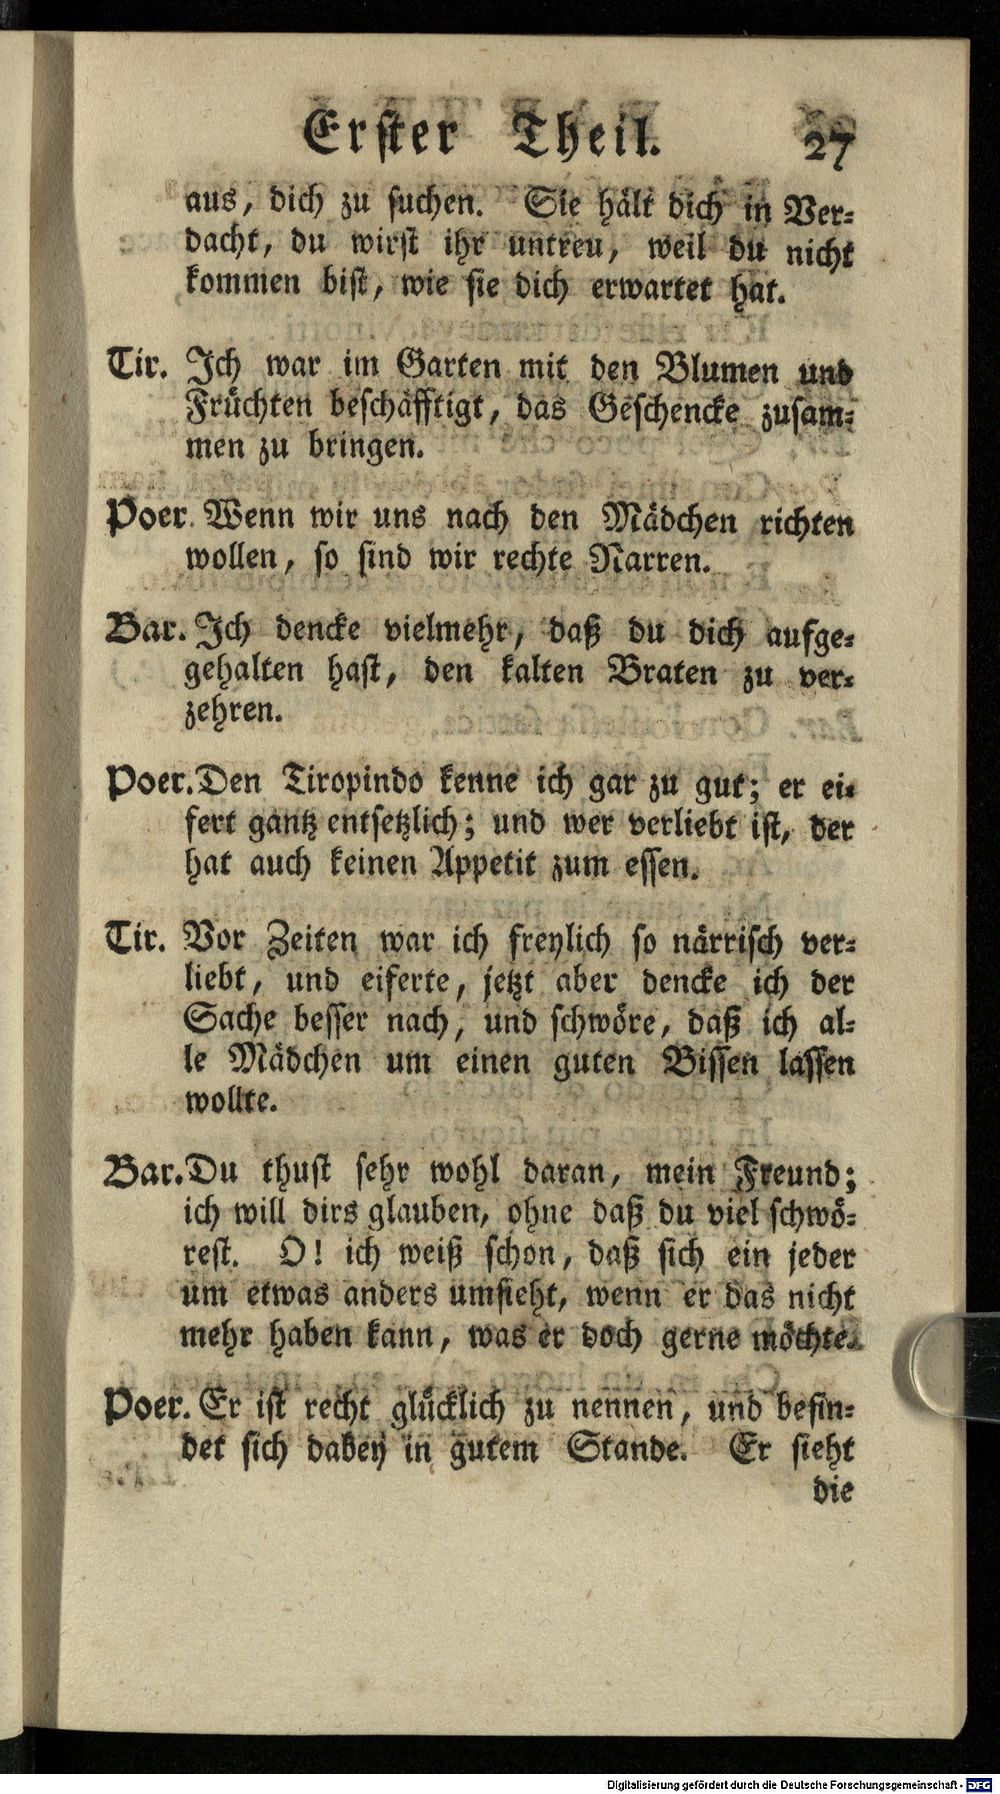 Erster Theil. 27
aus, dich zu suchen. Sie hält dich in Ver-
dacht, du wirst ihr untreu, weil du nicht
kommen bist, wie sie dich erwartet hat.
Tir. Ich war im Garten mit den Blumen und
Früchten beschäfftigt, das Geschencke zusam-
men zu bringen.
Poer. Wenn wir uns nach den Mädchen richten
wollen, so sind wir rechte Narren.
Bar. Ich dencke vielmehr, daß du dich aufge-
gehalten hast, den kalten Braten zu ver-
zehren.
Poer. Den Tiropindo kenne ich gar zu gut; er ei-
fert gantz entsetzlich; und wer verliebt ist, der
hat auch keinen Appetit zum essen.
Tir. Vor Zeiten war ich freylich so närrisch ver-
liebt, und eiferte, jetzt aber dencke ich der
Sache besser nach, und schwöre, daß ich al-
le Mädchen um einen guten Bissen lassen
wollte.
Bar. Du thust sehr wohl daran, mein Freund;
ich will dirs glauben, ohne daß du viel schwö-
rest. O! ich weiß schon, daß sich ein jeder
um etwas anders umsieht, wenn er das nicht
mehr haben kann, was er doch gerne möchte.
Poer. Er ist recht glücklich zu nennen, und befin-
det sich dabey in gutem Stande. Er sieht
die
Digitalisierung gefördert durch die Deutsche Forschungsgemeinschaft - DFG